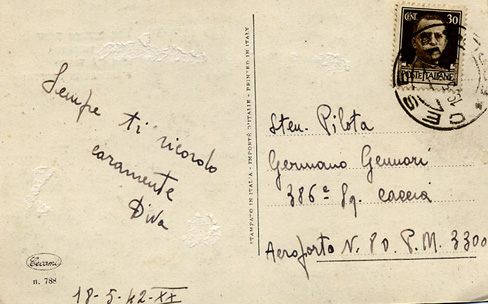 Sempre ti ricordo
caramente
Diva
Cecami
n. 788
18-5-42-XX
STAMPATO IN ITALIA - IMPORTÉ D'ITALIE - PRINTED IN ITALY
CENT. 30
POSTE ITALIANE
Sten. Pilota
Germano Gennari
386ª Sq. Caccia
Aeroporto N. 80 P.M. 3300